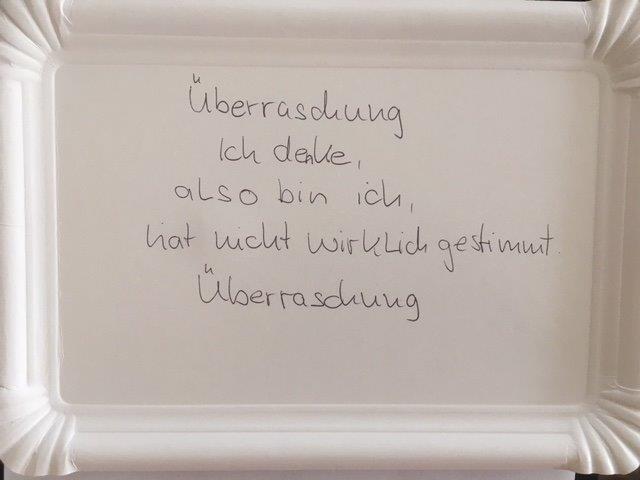 Überraschung
Ich denke,
also bin ich,
hat nicht wirklich gestimmt.
Überraschung